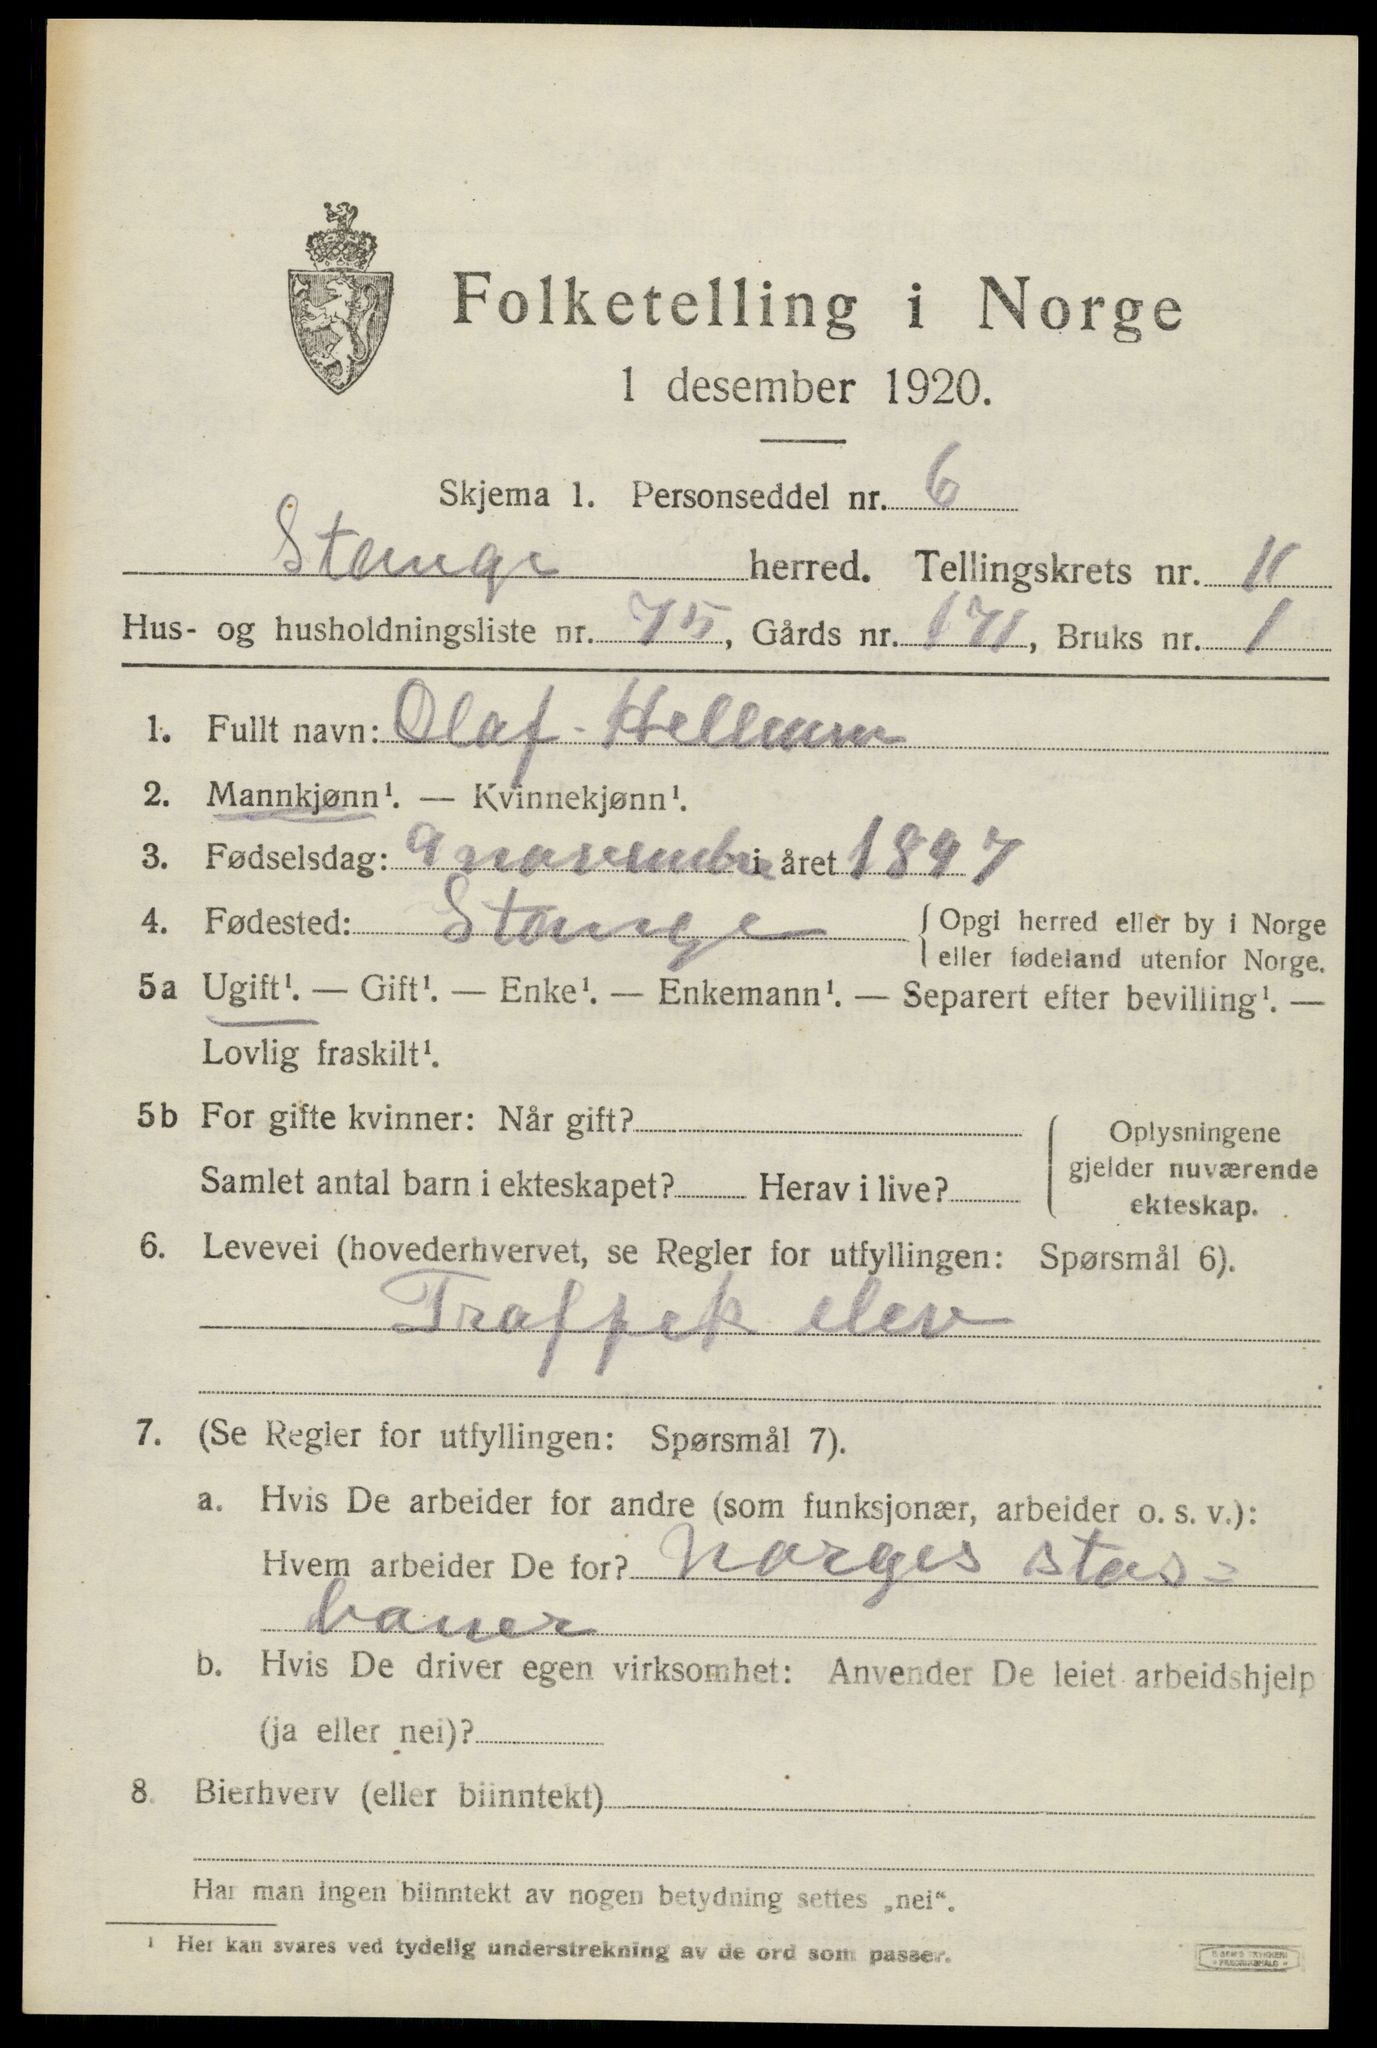 Folketelling i Norge
1 desember 1920.
Skjema 1. Personseddel nr. 6
Stange herred. Tellingskrets nr. 11
Hus- og husholdningsliste nr. 75, Gårds nr. 171, Bruks nr. 1
1. Fullt navn: Olaf Hellum
2. Mannkjønn¹. — Kvinnekjønn¹.
3. Fødselsdag: 9 november i året 1897
4. Fødested: Stange { Opgi herred eller by i Norge
eller fødeland utenfor Norge.
5a Ugift¹. — Gift¹. — Enke¹. — Enkemann¹. — Separert efter bevilling¹. —
Lovlig fraskilt¹.
5b For gifte kvinner: Når gift?
Samlet antal barn i ekteskapet? Herav i live?
Oplysningene
gjelder nuværende
ekteskap.
6. Levevei (hovederhvervet, se Regler for utfyllingen: Spørsmål 6).
Traffpek elev
7. (Se Regler for utfyllingen: Spørsmål 7).
a. Hvis De arbeider for andre (som funksjonær, arbeider o. s. v.):
Hvem arbeider De for? Norges stas=
baner
b. Hvis De driver egen virksomhet: Anvender De leiet arbeidshjelp
(ja eller nei)?
8. Bierhverv (eller biinntekt)
Har man ingen biinntekt av nogen betydning settes „nei“.
¹ Her kan svares ved tydelig understrekning av de ord som passer.